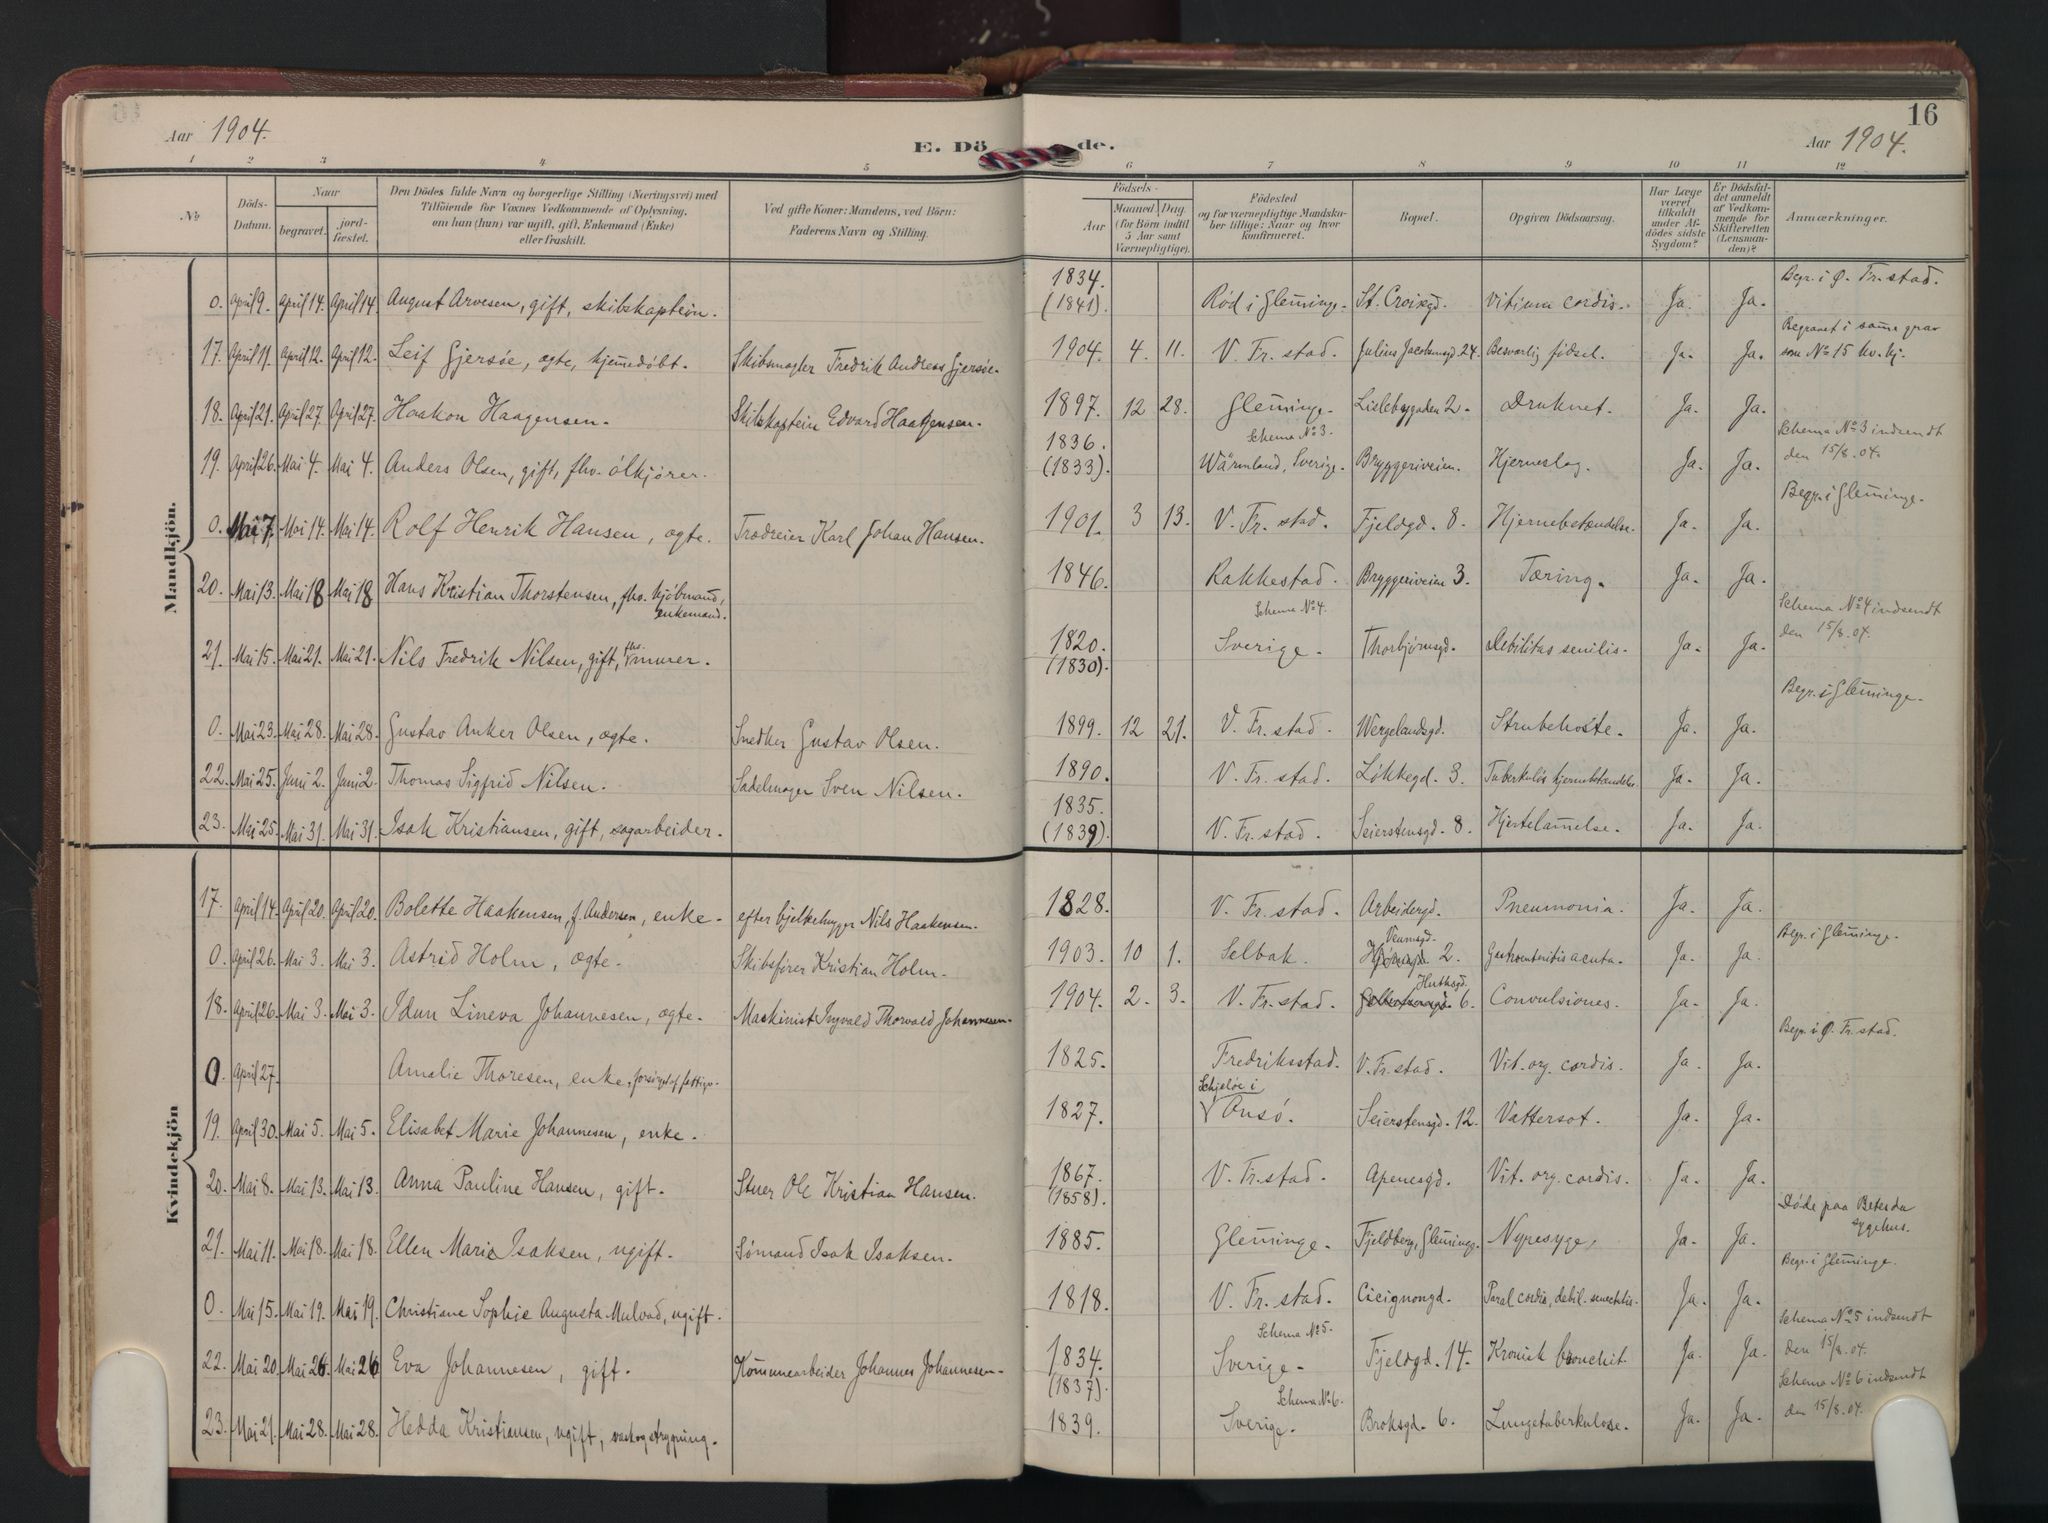 Aar 1904. E. Dö de. 16
Aar 1904.
1 2 3 4 5 6 7 8 9 10 11 12
No Döds-Datum. Naar begravet. jord-fæstet. Den Dödes fulde Navn og borgerlige Stilling (Næringsvei) med Tilföiende for Voxnes Vedkommende af Oplysning, om han (hun) var ugift, gift, Enkemand (Enke) eller fraskilt. Ved gifte Koner: Mandens, ved Börn: Faderens Navn og Stilling. Födsels- Aar Maaned. Dag. (for Börn indtil 5 Aar samt Værnepligtige). Födested og for værnepligtige Mandskaber tillige: Naar og hvor konfirmeret. Bopæl. Opgiven Dödsaarsag. Har Læge været tilkaldt under Afdödes sidste Sygdom? Er Dödsfaldet anmeldt af Vedkommende for Skifteretten (Lensmanden)? Anmærkninger.
Mandkjön.
0. April 9. April 14. April 14. August Arvesen, gift, skibskaptein. 1834. (1841). Rød i Glemminge. St. Croixgd. Vitium cordis. Ja. Ja. Begr. i Ø. Fr.stad.
17. April 11. April 12. April 12. Leif Gjersøe, ægte, hjemmedøbt. Skibsmægler Fredrik Andreas Gjersøe. 1904. 4. 11. V. Fr.stad. Julius Jacobsensgd 24. Besværlig fødsel. Ja. Ja. Begravet i samme grav som No 15 kv.kj.
18. April 21. April 27. April 27. Haakon Haagensen. Skibskaptein Edvard Haagensen. 1897. 12 28. Glemminge. Lislebygaden 2. Druknet. Ja. Ja.
19. April 26. Mai 4. Mai 4. Anders Olsen, gift, fhv. ølkjører. 1836. (1833). Schema No 3. Wärmland, Sverige. Bryggeriveien. Hjerneslag. Ja. Ja. Schema No 3 indsendt den 15/8.04.
0. Mai 7. Mai 14. Mai 14. Rolf Henrik Hansen, ægte. Trædreier Karl Johan Hansen. 1901. 3 13. V. Fr.stad. Fjeldgd. 8. Hjernebetændelse. Ja. Ja. Begr. i Glemminge.
20. Mai 13. Mai 18 Mai 18 Hans Kristian Thorstensen, fhv. kjøbmand, enkemand. 1846. Rakkestad. Bryggeriveien 3. Tæring. Ja. Ja.
21. Mai 15. Mai 21. Mai 21. Nils Fredrik Nilsen, gift, fhv. murer. 1820. (1830). Schema No 4. Sverige. Thorbjørnsgd. Debilitas senilis. Ja. Ja. Schema No 4 indsendt den 15/8.04.
0. Mai 23. Mai 28. Mai 28. Gustav Anker Olsen, ægte. Snedker Gustav Olsen. 1899. 12 21. V. Fr.stad. Wergelandsgd. Strubehoste. Ja. Ja. Begr. i Glemminge.
22. Mai 25. Juni 2. Juni 2. Thomas Sigfrid Nilsen. Sadelmager Sven Nilsen. 1890. V. Fr.stad. Løkkegd. 3. Tuberkuløs hjernebetændelse. Ja. Ja.
23. Mai 25. Mai 31. Mai 31. Isak Kristiansen, gift, sagarbeider. 1835. (1839). V. Fr.stad. Seierstensgd. 8. Hjertelammelse. Ja. Ja.
Kvindekjön
17. April 14. April 20. April 20. Bolette Haakensen, f. Andersen, enke. efter bjelkehugger Nils Haakensen. 1828. V. Fr.stad. Arbeidergd. Pneumonia. Ja. Ja.
0. April 26. Mai 3. Mai 3. Astrid Holm, ægte. Skibsfører Kristian Holm. 1903. 10 1. Selbak. Veumsgd. 2. Gastroenteritis acuta. Ja. Ja. Begr. i Glemminge.
18. April 26. Mai 3. Mai 3. Idun Lineva Johannesen, ægte. Maskinist Ingvald Thorvald Johannesen. 1904. 2. 3. V. Fr.stad. Huthsgd. 6. Convulsiones. Ja. Ja.
0. April 27. Amalie Thoresen, enke, forsørget af fattigv. 1825. Fredriksstad. V. Fr.stad. Vit. org. cordis. Ja. Ja. Begr. i Ø. Fr.stad.
19. April 30. Mai 5. Mai 5. Elisabet Marie Johannesen, enke. 1827. Schjeløe i Onsø. Seierstensgd. 12. Vattersot. Ja. Ja.
20. Mai 8. Mai 13. Mai 13. Anna Pauline Hansen, gift. Stuer Ole Kristian Hansen. 1867. (1858). V. Fr.stad. Apenesgd. Vit. org. cordis. Ja. Ja.
21. Mai 11. Mai 18. Mai 18. Ellen Marie Isaksen, ugift. Sømand Isak Isaksen. 1885. Glemminge. Fjeldberg, Glemminge. Nyresyge. Ja. Ja. Døde paa Betesda sygehus.
0. Mai 15. Mai 19. Mai 19. Christiane Sophie Augusta Mulvad, ugift. 1818. V. Fr.stad. Cicignongd. Paral cordis, debil. senectutis. Ja. Ja. Begr. i Glemminge.
22. Mai 20. Mai 26. Mai 26 Eva Johannesen, gift. Kommunearbeider Johannes Johannesen. 1834. (1837). Schema No 5. Sverige. Fjeldgd. 14. Kronisk bronchit. Ja. Ja. Schema No 5 indsendt den 15/8.04.
23. Mai 21. Mai 28. Mai 28. Hedda Kristiansen, ugift, vask og strygning. 1839. Schema No 6. Sverige. Broksgd. 6. Lungetuberkulose. Ja. Ja. Schema No 6 indsendt den 15/8.04.